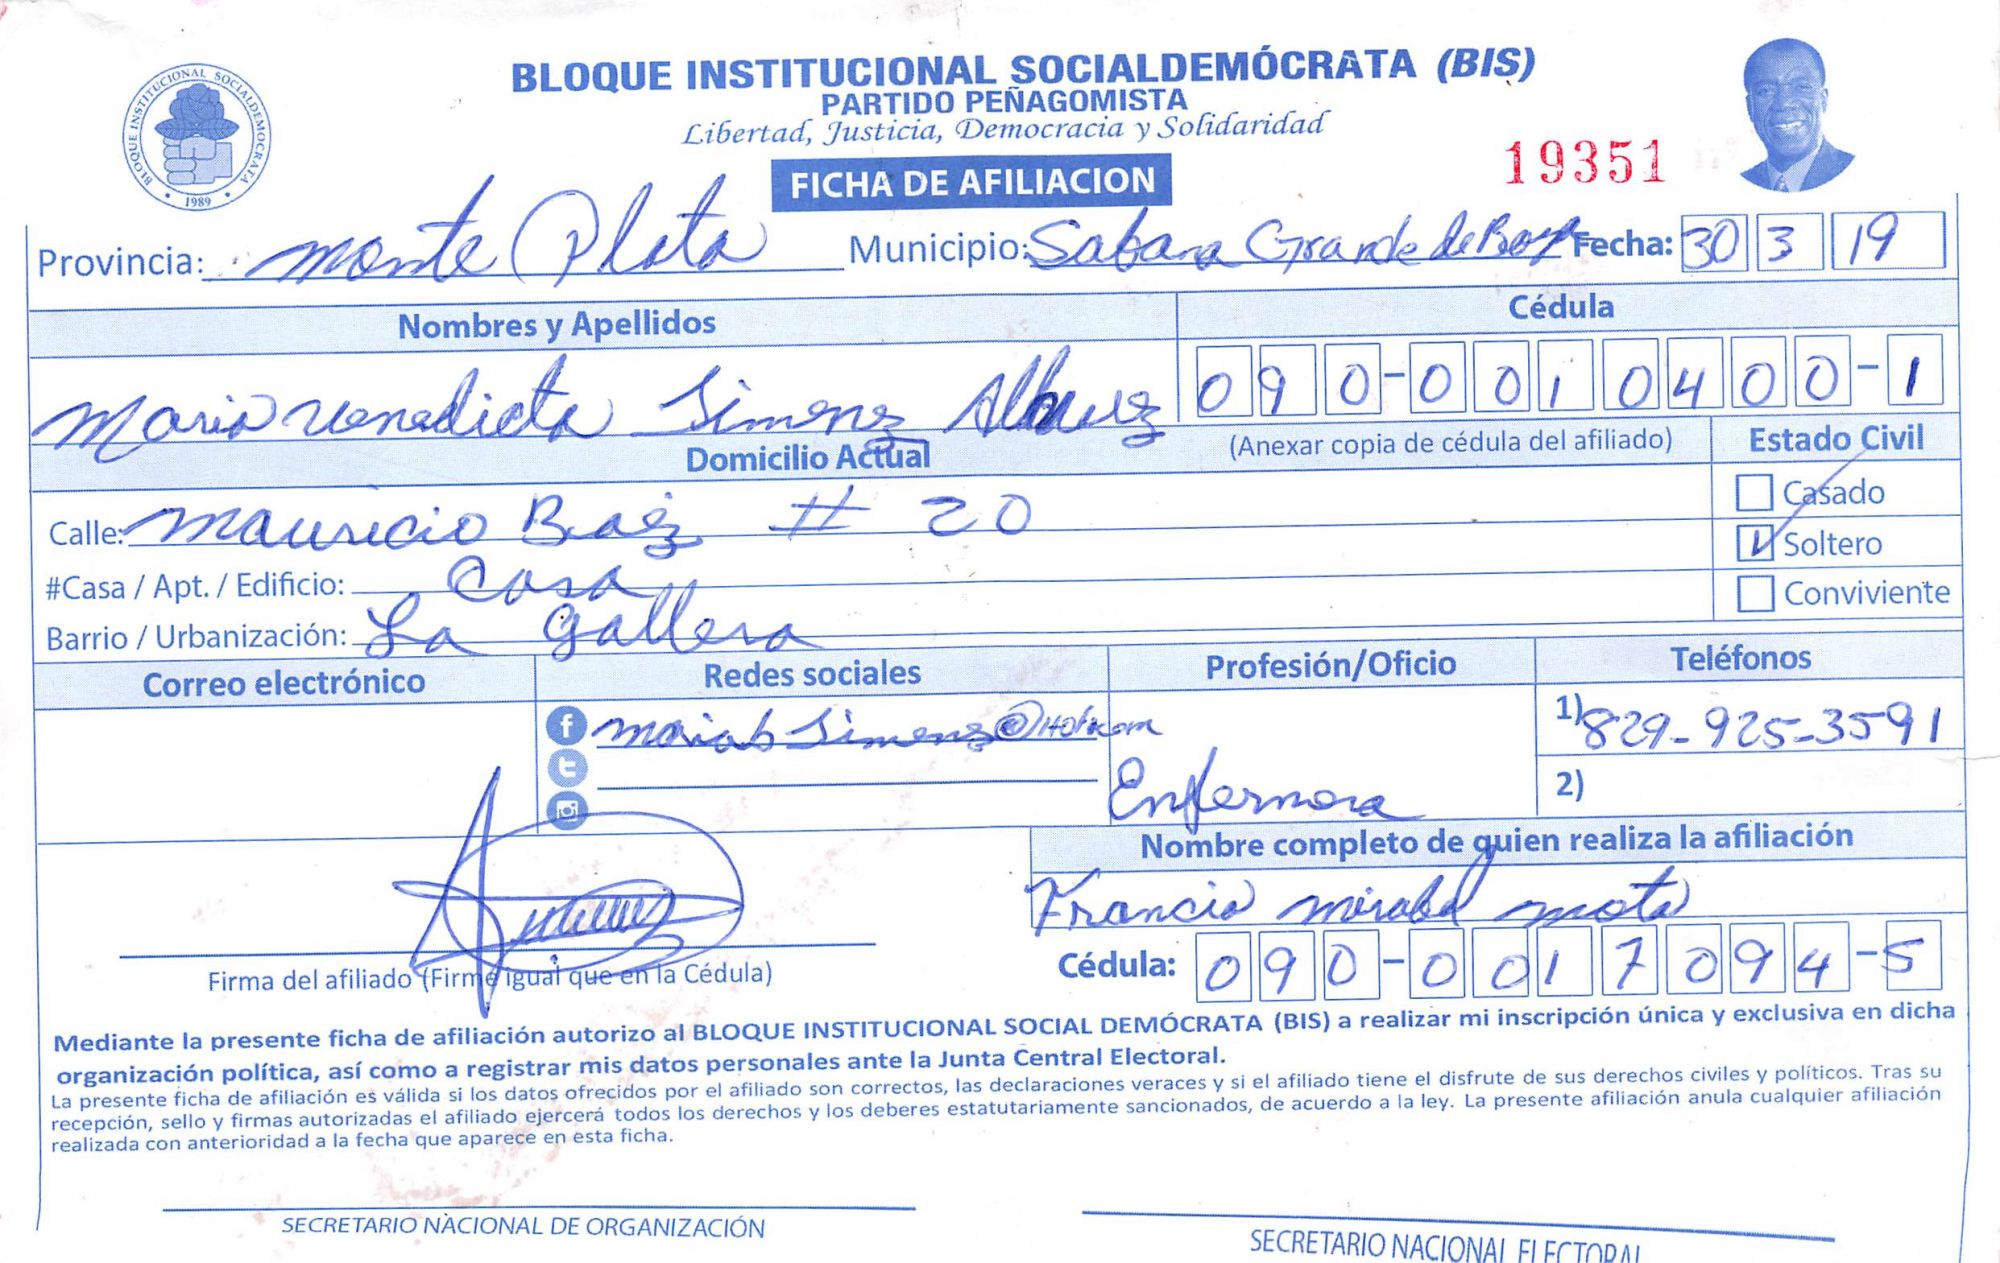 BLOQUE INSTITUCIONAL SOCIALDEMÓCRATA (BIS)
PARTIDO PEÑAGOMISTA
Libertad, Justicia, Democracia y Solidaridad
BLOQUE INSTITUCIONAL SOCIALDEMOCRATA
1989
19351
FICHA DE AFILIACION
Provincia: Monte Plata Municipio: Sabana Grande de Boya Fecha: 30 3 19
Nombres y Apellidos Cédula
Maria Venedicta Simenez 090-0010400-1
(Anexar copia de cédula del afiliado) Estado Civil
Domicilio Actual
Casado
Calle: Mauricio Baez # 20
Soltero
#Casa / Apt. / Edificio: Casa
Conviviente
Barrio / Urbanización: La Gallera
Correo electrónico Redes sociales Profesión/Oficio Teléfonos
mariab Simenez@Hot.com 1) 829-925-3591
Enfermera 2)
Nombre completo de quien realiza la afiliación
Francis mirabal mota
Cédula: 090-0017094-5
Firma del afiliado (Firme igual que en la Cédula)
Mediante la presente ficha de afiliación autorizo al BLOQUE INSTITUCIONAL SOCIAL DEMÓCRATA (BIS) a realizar mi inscripción única y exclusiva en dicha
organización política, así como a registrar mis datos personales ante la Junta Central Electoral.
La presente ficha de afiliación es válida si los datos ofrecidos por el afiliado son correctos, las declaraciones veraces y si el afiliado tiene el disfrute de sus derechos civiles y políticos. Tras su
recepción, sello y firmas autorizadas el afiliado ejercerá todos los derechos y los deberes estatutariamente sancionados, de acuerdo a la ley. La presente afiliación anula cualquier afiliación
realizada con anterioridad a la fecha que aparece en esta ficha.
SECRETARIO NACIONAL DE ORGANIZACIÓN
SECRETARIO NACIONAL ELECTORAL